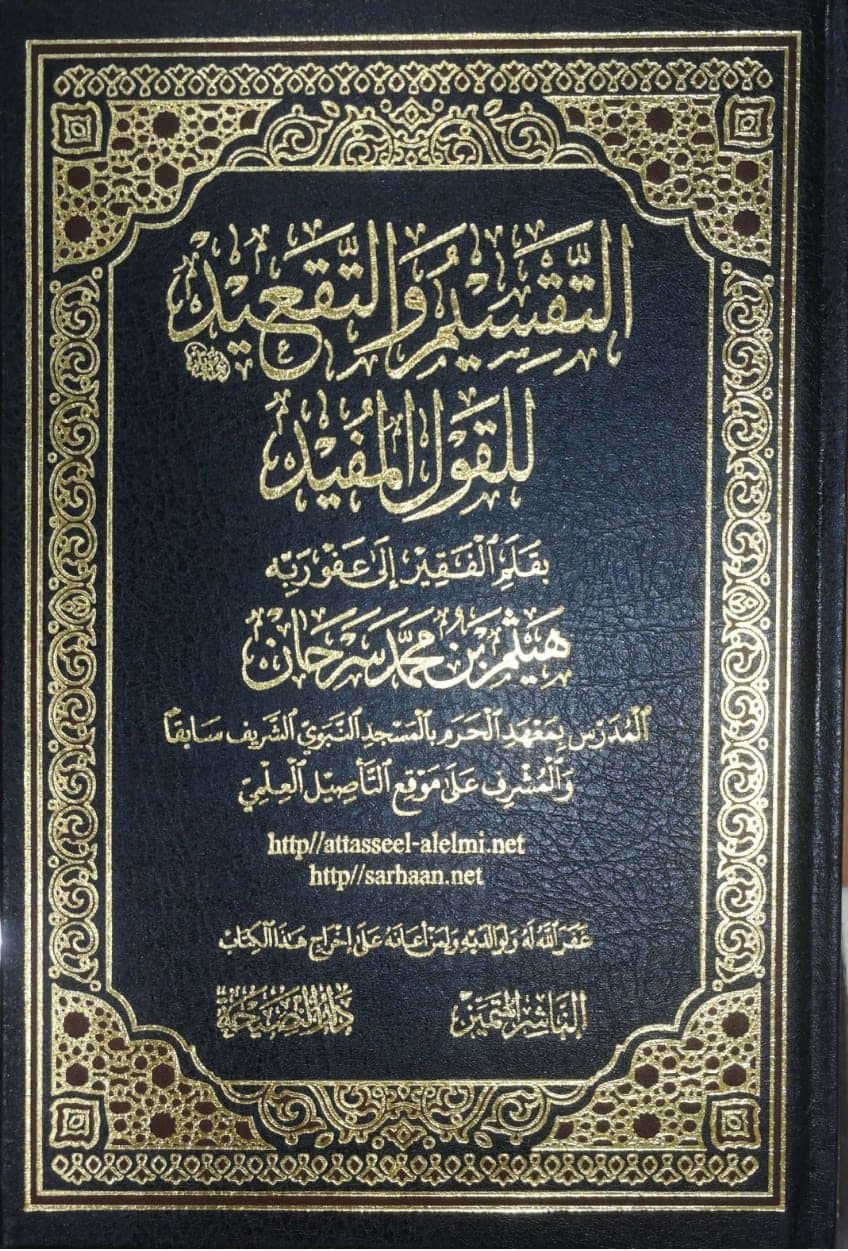 التَّقْسِيمُ وَالتَّقْعِيد
لِلقَوْلِ المُفِيد
بِقَلَمِ الْفَقِيرِ إِلَى عَفْوِ رَبِّهِ
هَيْثَمِ بْنِ مُحَمَّد سَرْحَان
الْمُدَرِّس بِمَعْهَدِ الْحَرَمِ بِالْمَسْجِدِ النَّبَوِيِّ الشَّرِيفِ سَابِقًا
وَالْمُشْرِف عَلَى مَوْقِعِ التَّأْصِيلِ الْعِلْمِيِّ
http//attasseel-alelmi.net
http//sarhaan.net
غَفَرَ اللَّهُ لَهُ وَلِوَالِدَيْهِ وَلِمَنْ أَعَانَهُ عَلَى إِخْرَاجِ هَذَا الْكِتَابِ
الناشر المتميز
دار النصيحة